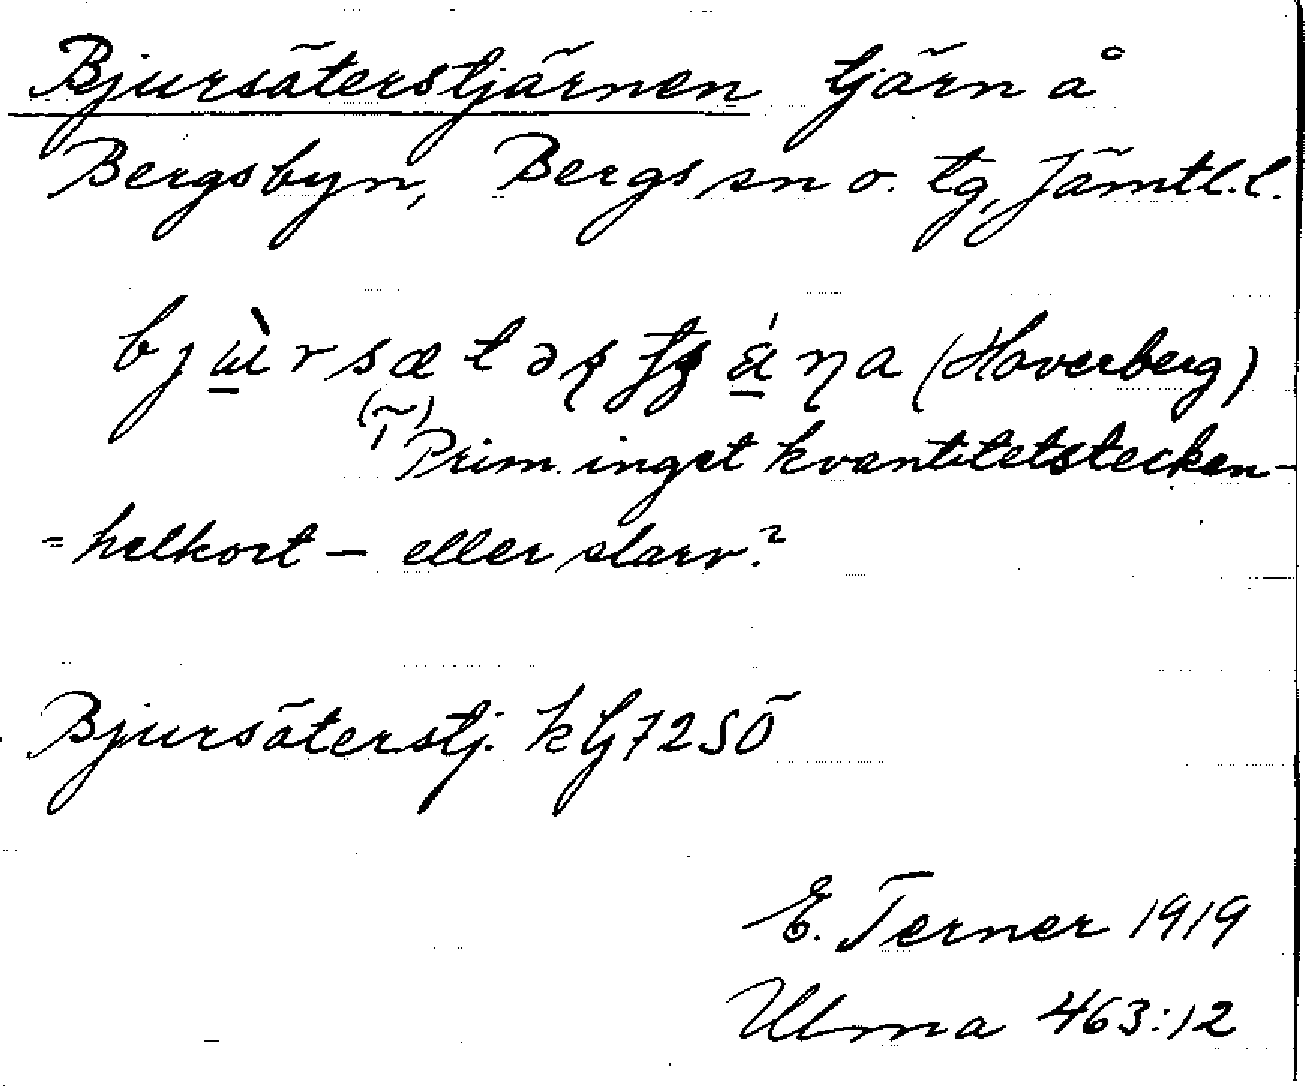 Bjursäterstjärnen tjärn å
Bergsbyn, Bergs sn o. tg, Jämtl. l.
(Hoverberg)
Prim. inget kvantitetstecken –
= helkort – eller slarv?
Bjursäterstj. ktj 72 SÖ
E. Terner 1919
Ulma 463:12